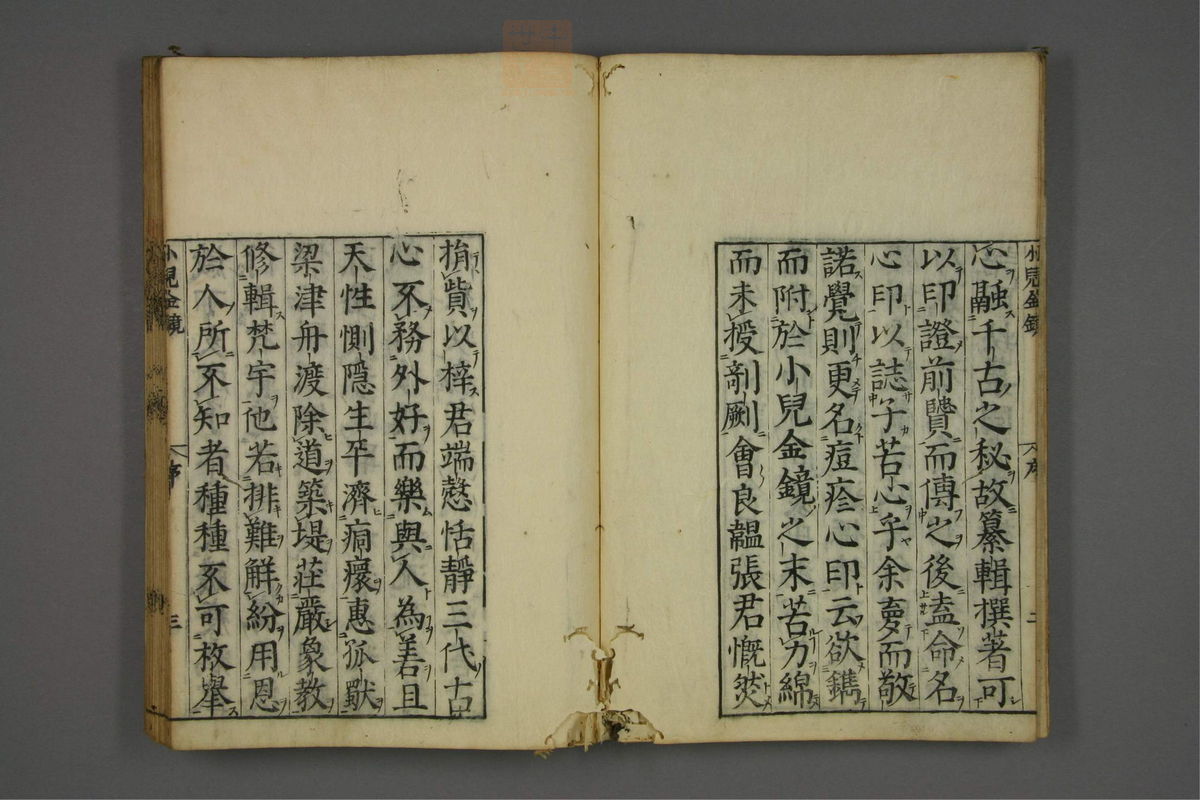 小兒金鏡
序
二
心融千古之秘故纂輯撰著可
以印證前賢而傳之後盍命名
心印以誌子苦心乎余夢而敬
諾覺則更名痘疹心印云欲鐫
而附於小兒金鏡之末苦力綿
而未授剞劂會良韞張君慨然
捐貲以梓君端愨恬靜三代古
心不務外好而樂與人為善且
天性惻隱生平濟痌瘝惠孤獸
梁津舟渡除道築堤莊嚴象教
修輯梵宇他若排難解紛用恩
於人所不知者種種不可枚舉
小兒金鏡
序
三